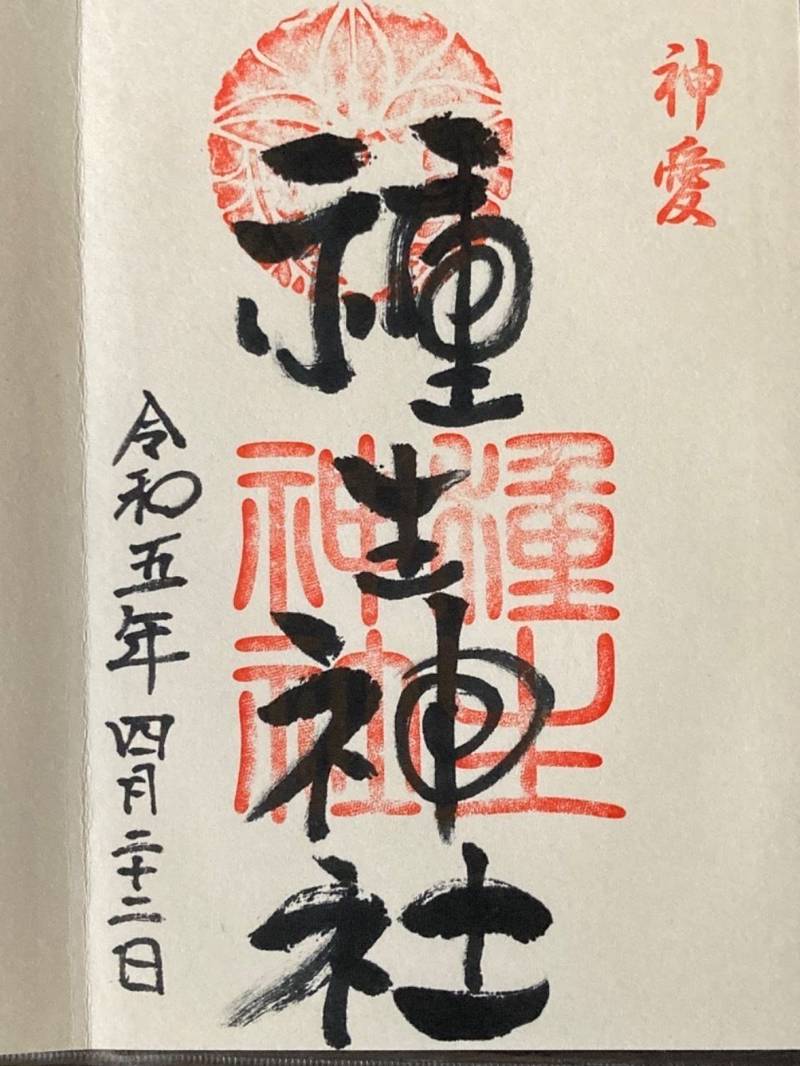 神愛
種生神社
種生
神社
令和五年四月二十二日